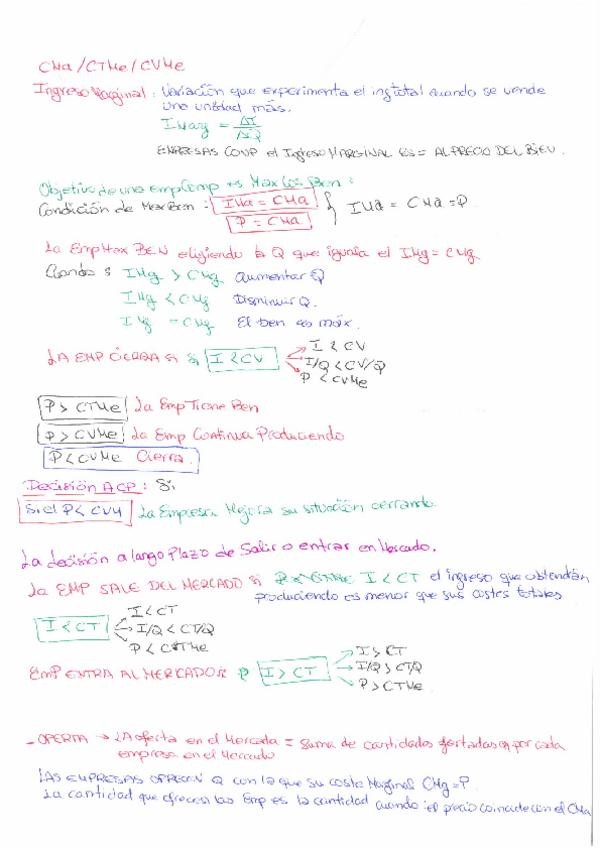 CMa / CTMe / CVMe
Ingreso Marginal : Variación que experimenta el ing total cuando se vende
una unidad más.
IMarg = ΔI/ΔQ
EMPRESAS COMP el Ingreso MARGINAL es = AL PRECIO DEL BIEN.
Objetivo de una emp Comp es Max los Ben :
Condición de Max Ben : IMa = CMa } IMa = CMa = P
P = CMa
La Emp Max BEN eligiendo la Q que iguala el IMg = CMg
Cuando : IMg > CMg Aumentar Q
IMg < CMg Disminuir Q.
IMg = CMg El ben es máx.
LA EMP CIERRA si I < CV → I < CV
→ I/Q < CV/Q
→ P < CVMe
P > CTMe La Emp Tiene Ben
P > CVMe La Emp Continua Produciendo
P < CVMe Cierra.
Decisión A CP : Si
Si el P < CVM La Empresa Mejora su situación cerrando.
La decisión a largo Plazo de Salir o entrar en Mercado.
La EMP SALE DEL MERCADO si I < CT el ingreso que obtendrán
produciendo es menor que sus costes totales
I < CT → I < CT
→ I/Q < CT/Q
→ P < CTMe
EMP ENTRA AL MERCADO si P I > CT → I > CT
→ I/Q > CT/Q
→ P > CTMe
- OFERTA → LA oferta en el Mercado = Suma de cantidades ofertadas por cada
empresa en el Mercado
LAS EMPRESAS OFRECEN Q con la que su coste Marginal CMg = P.
La cantidad que ofrecen las Emp es la cantidad cuando el precio coincide con el CMa